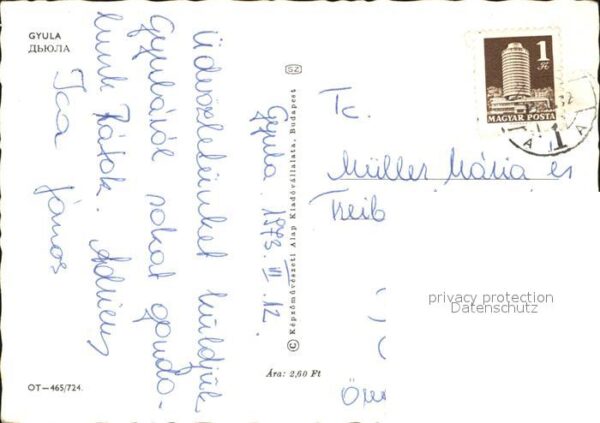 GYULA
ДЬЮЛА
Gyula. 1973. VI. 12.
Üdvözletünket küldjük
Gyuláról sokat gondo-
lunk Rátok.
Ica János
OT—465/724.
SZ
© Képzőművészeti Alap Kiadóvállalata, Budapest
Ára: 2,60 Ft
1 Ft
MAGYAR POSTA
Tc.
Müller Mária és
Treib
privacy protection
Datenschutz